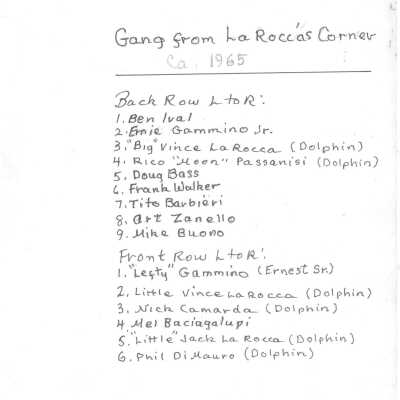 Gang from La Rocca's Corner
Ca. 1965
Back Row L to R:
1. Ben Ival
2. Ernie Gammino Jr.
3. "Big" Vince La Rocca (Dolphin)
4. Rico "Moon" Passanisi (Dolphin)
5. Doug Bass
6. Frank Walker
7. Tito Barbieri
8. Art Zanello
9. Mike Buono
Front Row L to R:
1. "Lefty" Gammino (Ernest Sr.)
2. Little Vince La Rocca (Dolphin)
3. Nick Camarda (Dolphin)
4. Mel Baciagalupi
5. "Little" Jack La Rocca (Dolphin)
6. Phil Di Mauro (Dolphin)